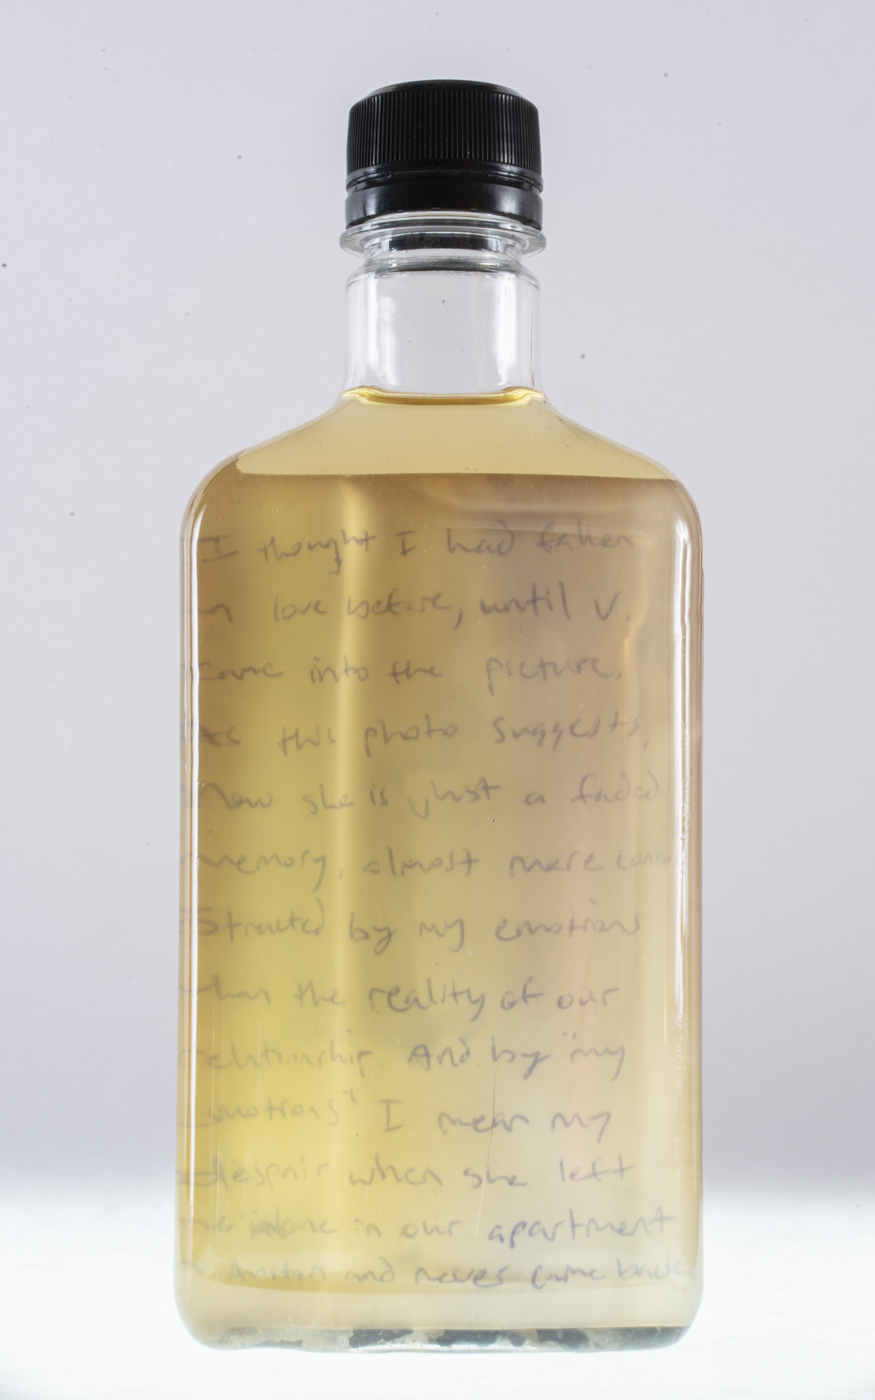 I thought I had fallen
in love before, until V.
came into the picture.
As this photo suggests,
Now she is just a faded
memory, almost more con-
structed by my emotions
than the reality of our
relationship. And by "my
emotions" I mean my
despair when she left
me alone in our apartment
in Austin and never came back